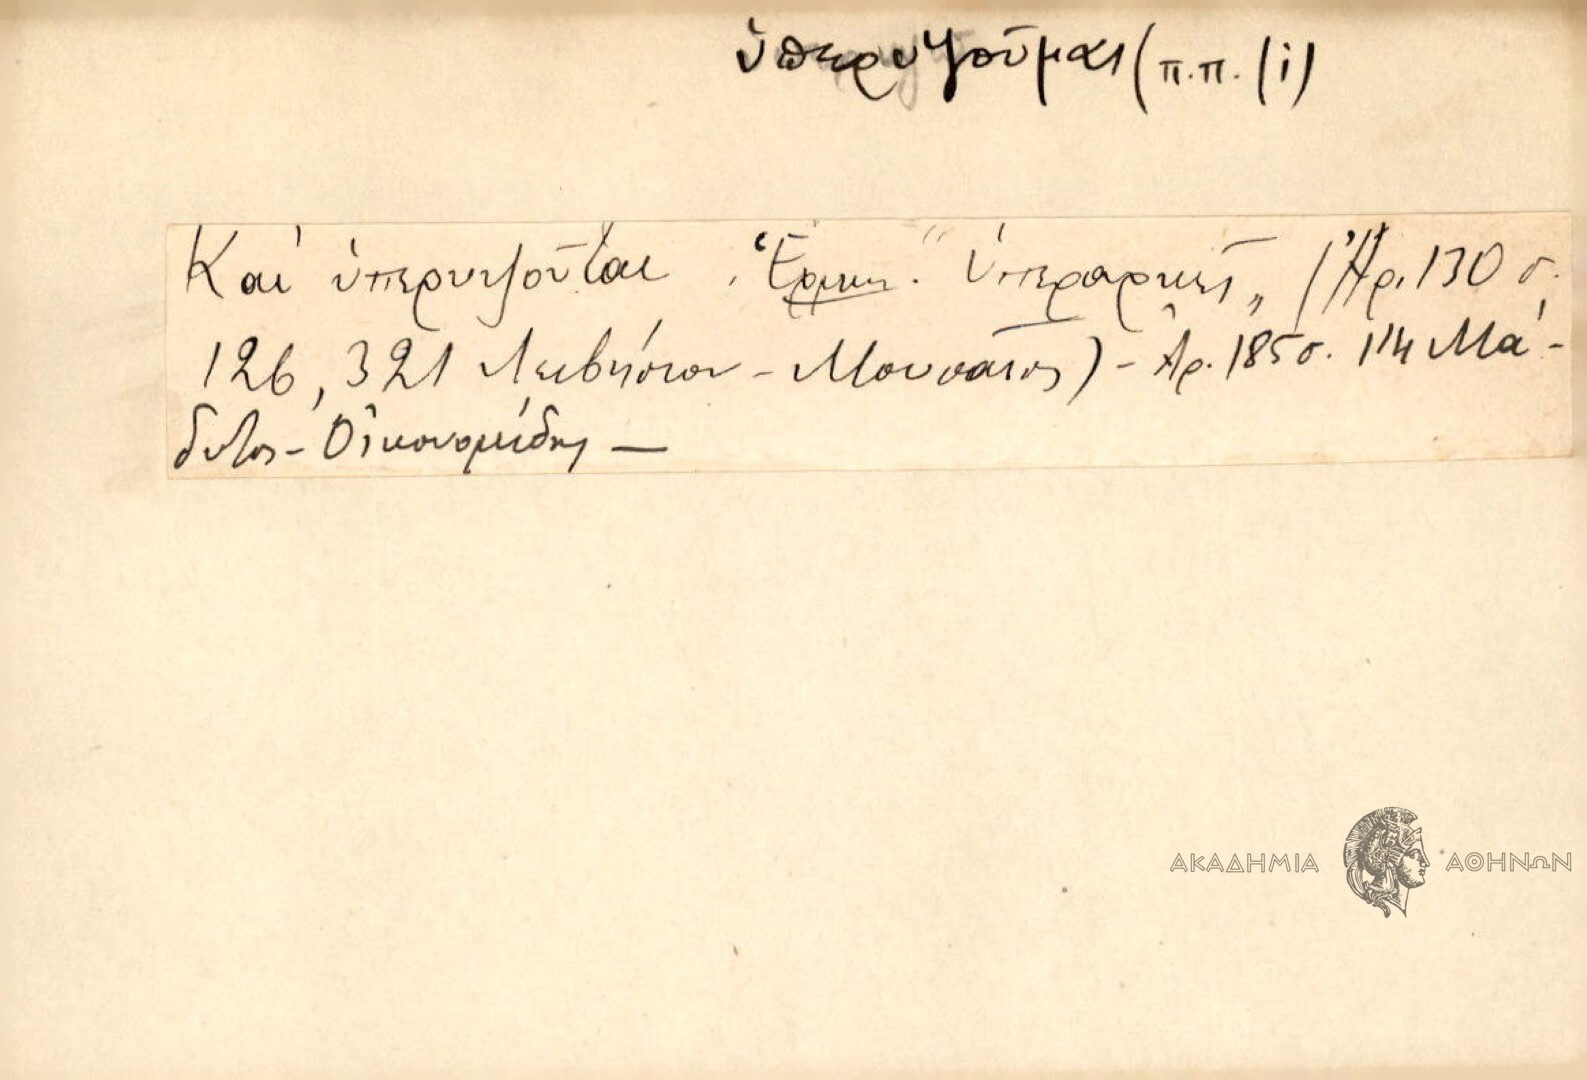 ὑπερυψοῦμαι (π.π. (i)
Καὶ ὑπερυψοῦται. Ἑρμην. "Ὑπεραρκεῖ„ (Ἀρ. 130 σ.
126, 321 Λειβήσιον - Μουσαῖος) - Ἀρ. 185 σ. 114 Μά-
δυτος - Οἰκονομίδης —
ΑΚΑΔΗΜΙΑ ΑΘΗΝΩΝ